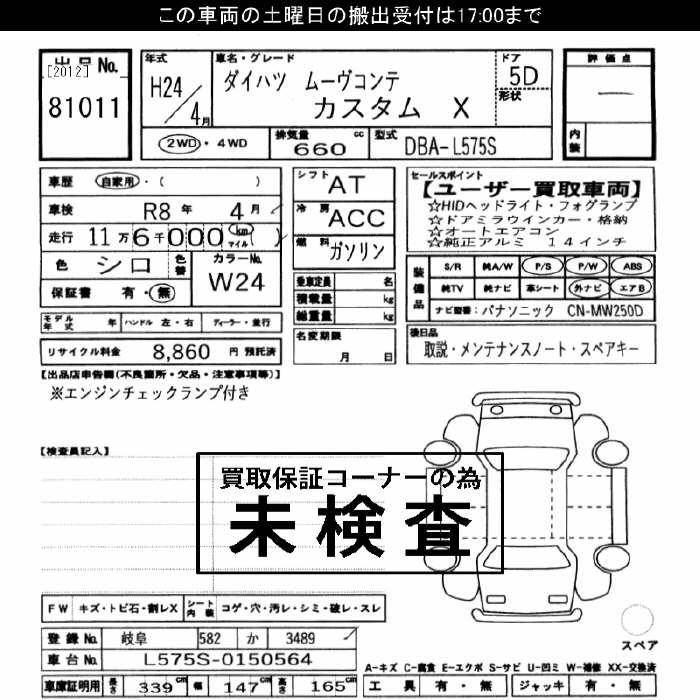 この車両の土曜日の搬出受付は17:00まで
出品No.
[2012]
81011
年式
H24/4月
車名・グレード
ダイハツ ムーヴコンテ
カスタム X
ドア
5D
形状
評価点
―
内装
2WD・4WD
排気量 660 cc
型式 DBA-L575S
車歴 自家用・( )
車検 R8年 4月
走行 11万6千000 km マイル
色 シロ
色替
カラーNo.
W24
保証書 有・無
シフト AT
冷房 ACC
燃料 ガソリン
乗車定員 名
積載量 kg
総重量 kg
セールスポイント
【ユーザー買取車両】
☆HIDヘッドライト・フォグランプ
☆ドアミラウインカー・格納
☆オートエアコン
☆純正アルミ 14インチ
装備品
S/R 純A/W P/S P/W ABS
純TV 純ナビ 革シート 外ナビ エアB
ナビ型番: パナソニック CN-MW250D
モデル年式 年 ハンドル 左・右 ディーラー・並行
名変期限
月 日
後日品
取説・メンテナンスノート・スペアキー
リサイクル料金 8,860 円 預託済
【出品店申告欄(不良箇所・欠品・注意事項等)】
※エンジンチェックランプ付き
【検査員記入】
買取保証コーナーの為
未検査
FW キズ・トビ石・割レX シート内装 コゲ・穴・汚レ・シミ・破レ・スレ
登録No. 岐阜 582 か 3489
車台No. L575S-0150564
車庫証明用 長さ 339cm 幅 147cm 高さ 165cm
スペア
A-キズ C-腐食 E-エクボ S-サビ U-凹ミ W-補修 XX-交換済
工具 有・無 ジャッキ 有・無